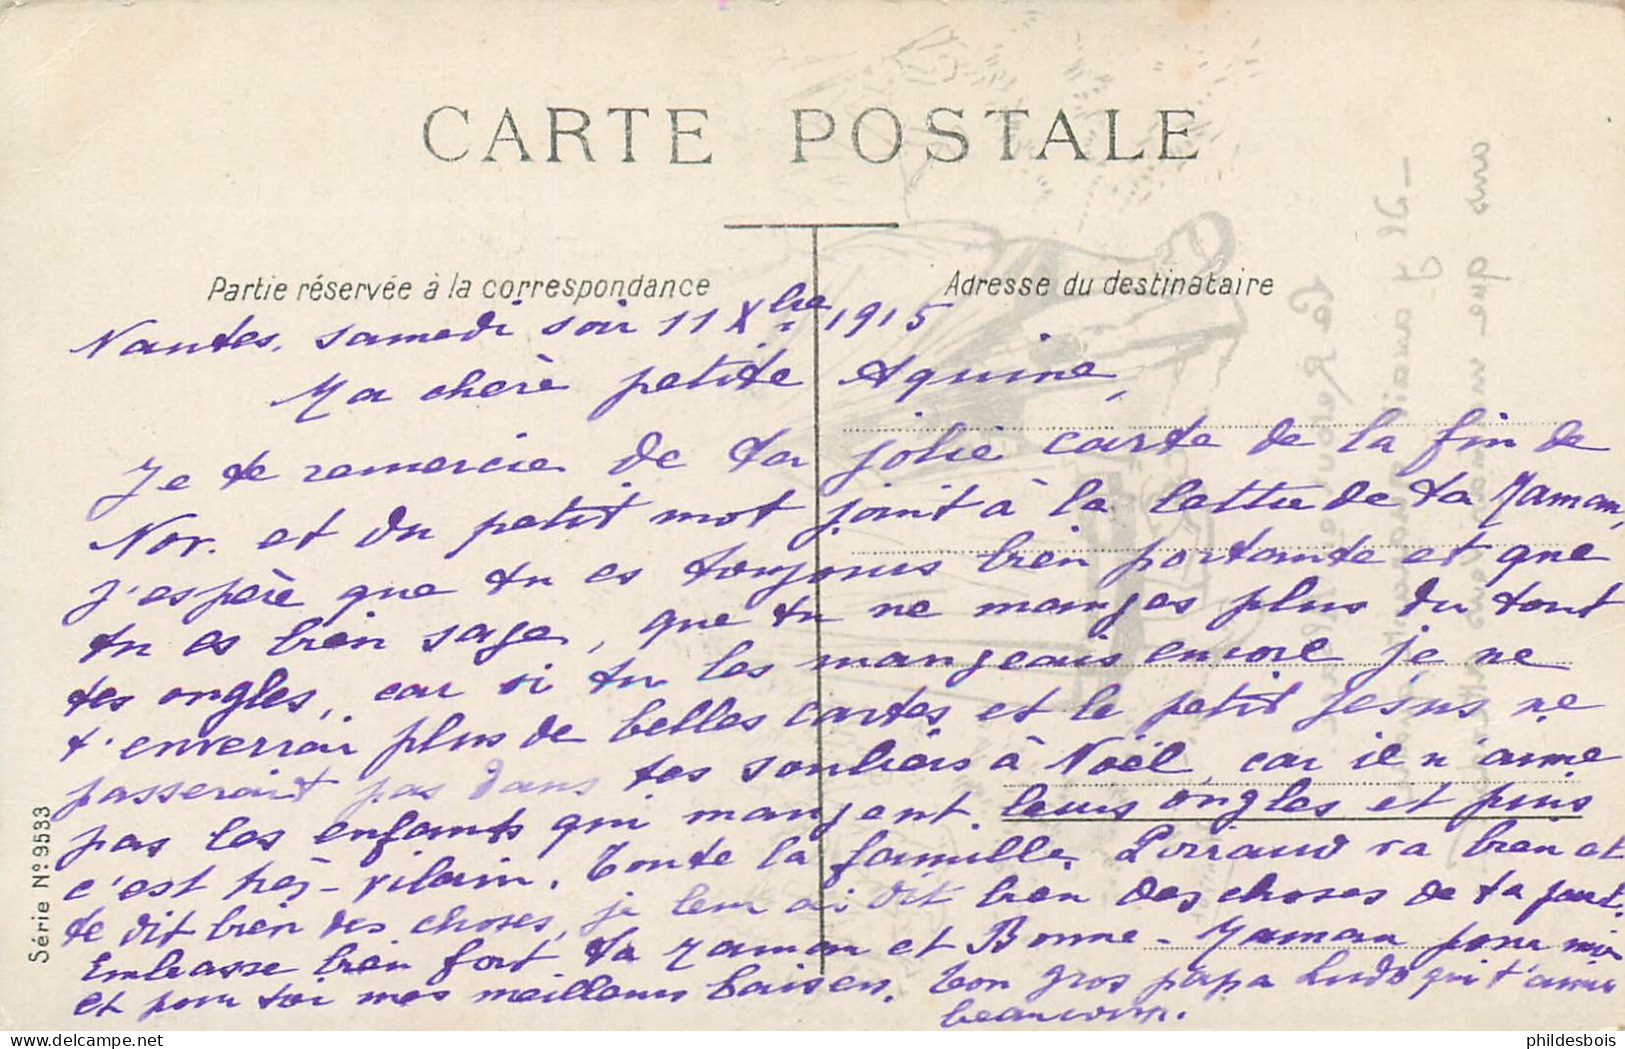 CARTE POSTALE
Partie réservée à la correspondance
Adresse du destinataire
Nantes, samedi soir 11 Xbre 1915
Ma chère petite Aquine,
Je te remercie de ta jolie carte de la fin de
Nov. et du petit mot joint à la lettre de ta Maman,
j'espère que tu es toujours bien portante et que
tu es bien sage, que tu ne manges plus du tout
tes ongles, car si tu les mangeais encore je ne
t'enverrai plus de belles cartes et le petit Jésus ne
passerait pas dans tes souliers à Noël, car il n'aime
pas les enfants qui mangent leurs ongles et puis
c'est très-vilain. Toute la famille va bien et
te dit bien des choses, je leur ai dit bien des choses de ta part.
Embrasse bien fort ta Maman et Bonne-Maman pour moi
et pour toi mes meilleurs baisers. Ton gros papa Ludo qui t'aime
beaucoup.
Série No. 9533
phildesbois